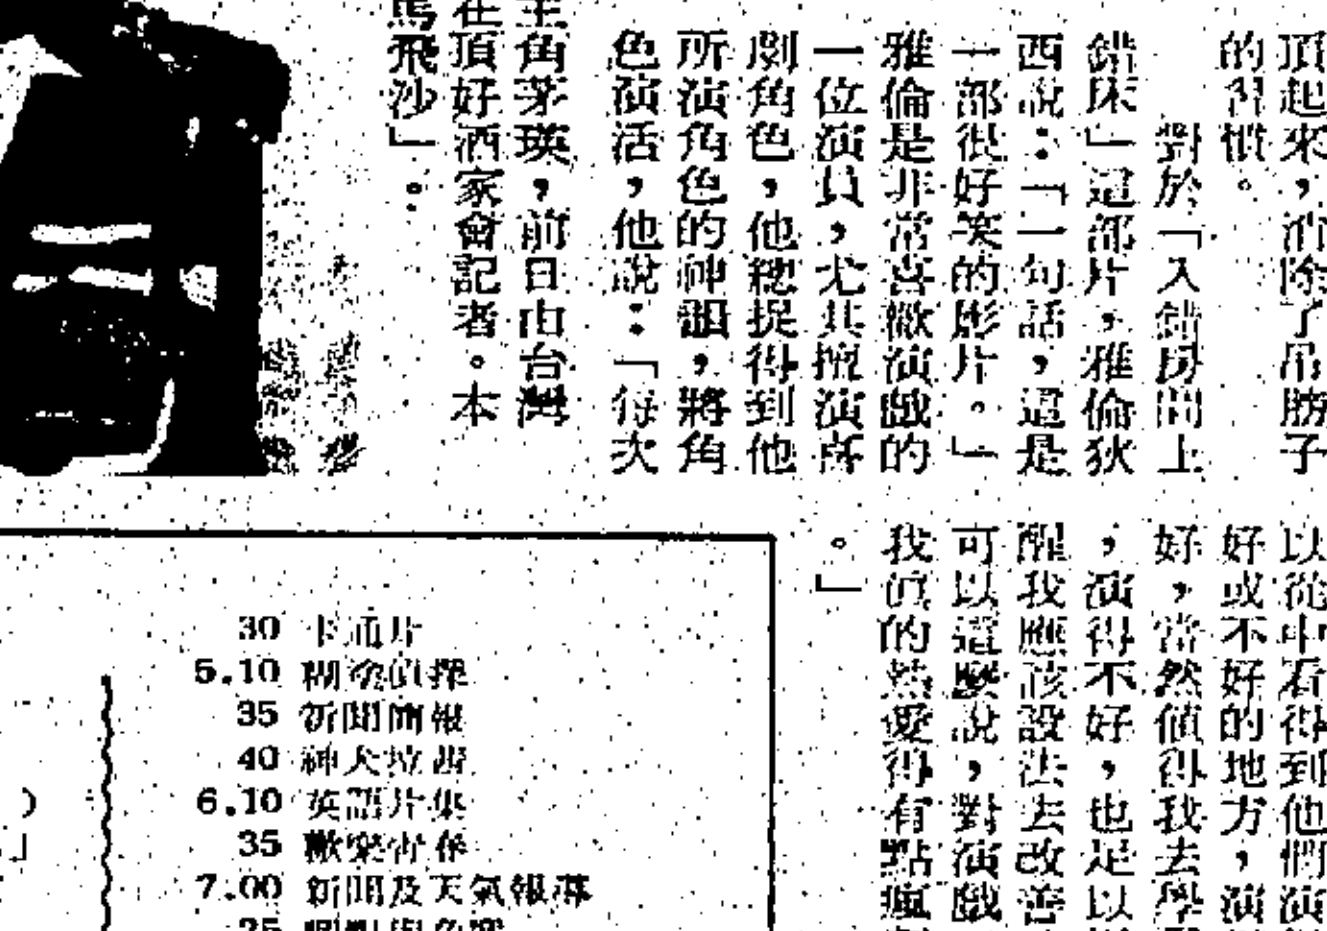 頂起來，消除了吊勝子
的習慣。
對於「入錯房間上
錯床」這部片，雅倫狄
西說：「一句話，這是
一部很好笑的影片。」
雅倫是非常喜歡演戲的
一位演員，尤其擅演喜
劇角色，他總捉得到他
所演角色的神韻，將角
色演活，他說：「每次
以從中看得到他們演
好或不好的地方，演
好，當然值得我去學
，演得不好，也足以
醒我應該設法去改善
可以這麼說，對演戲
我真的熱愛得有點瘋
。」
主角茅瑛，前日由台灣
在頂好酒家會記者。本
馬飛沙」：
30 卡通片
5.10 糊塗偵探
35 新聞簡報
40 神犬拉西
6.10 英語片集
35 歡樂青春
7.00 新聞及天氣報導